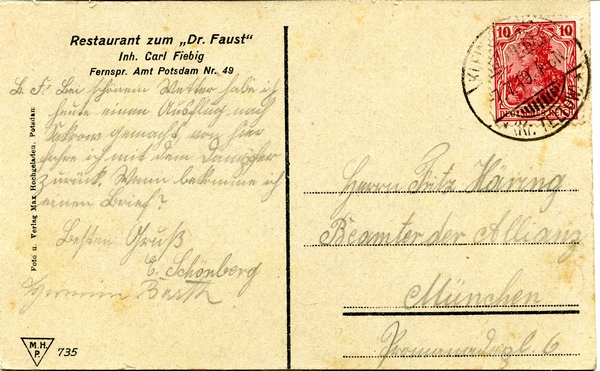 Restaurant zum „Dr. Faust"
Inh. Carl Fiebig
Fernspr. Amt Potsdam Nr. 49
L. F! Bei schönem Wetter habe ich
heute einen Ausflug nach
Sakrow gemacht, von hier
fahre ich mit dem Dampfer
zurück. Wann bekomme ich
einen Brief?
Besten Gruß
E. Schönberg
Hermine Barth
Foto u. Verlag Max Hochgeladen, Potsdam
M.H.
P.
735
10 10
DEUTSCHES REICH
KLEIN
(KR. TELTOW)
Herrn Fritz Häring
Beamter der Allianz
München
Promenadepl. 6